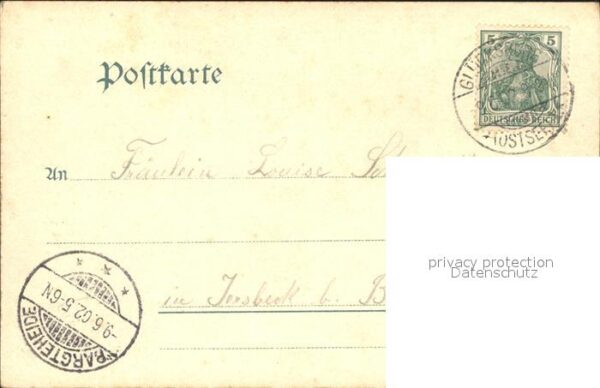 Postkarte
5 5
DEUTSCHES REICH
(OSTSEE)
An Fräulein Louise
privacy protection
Datenschutz
in Jersbeck b. B
-9.6.02.5-6N
BARGTEHEIDE